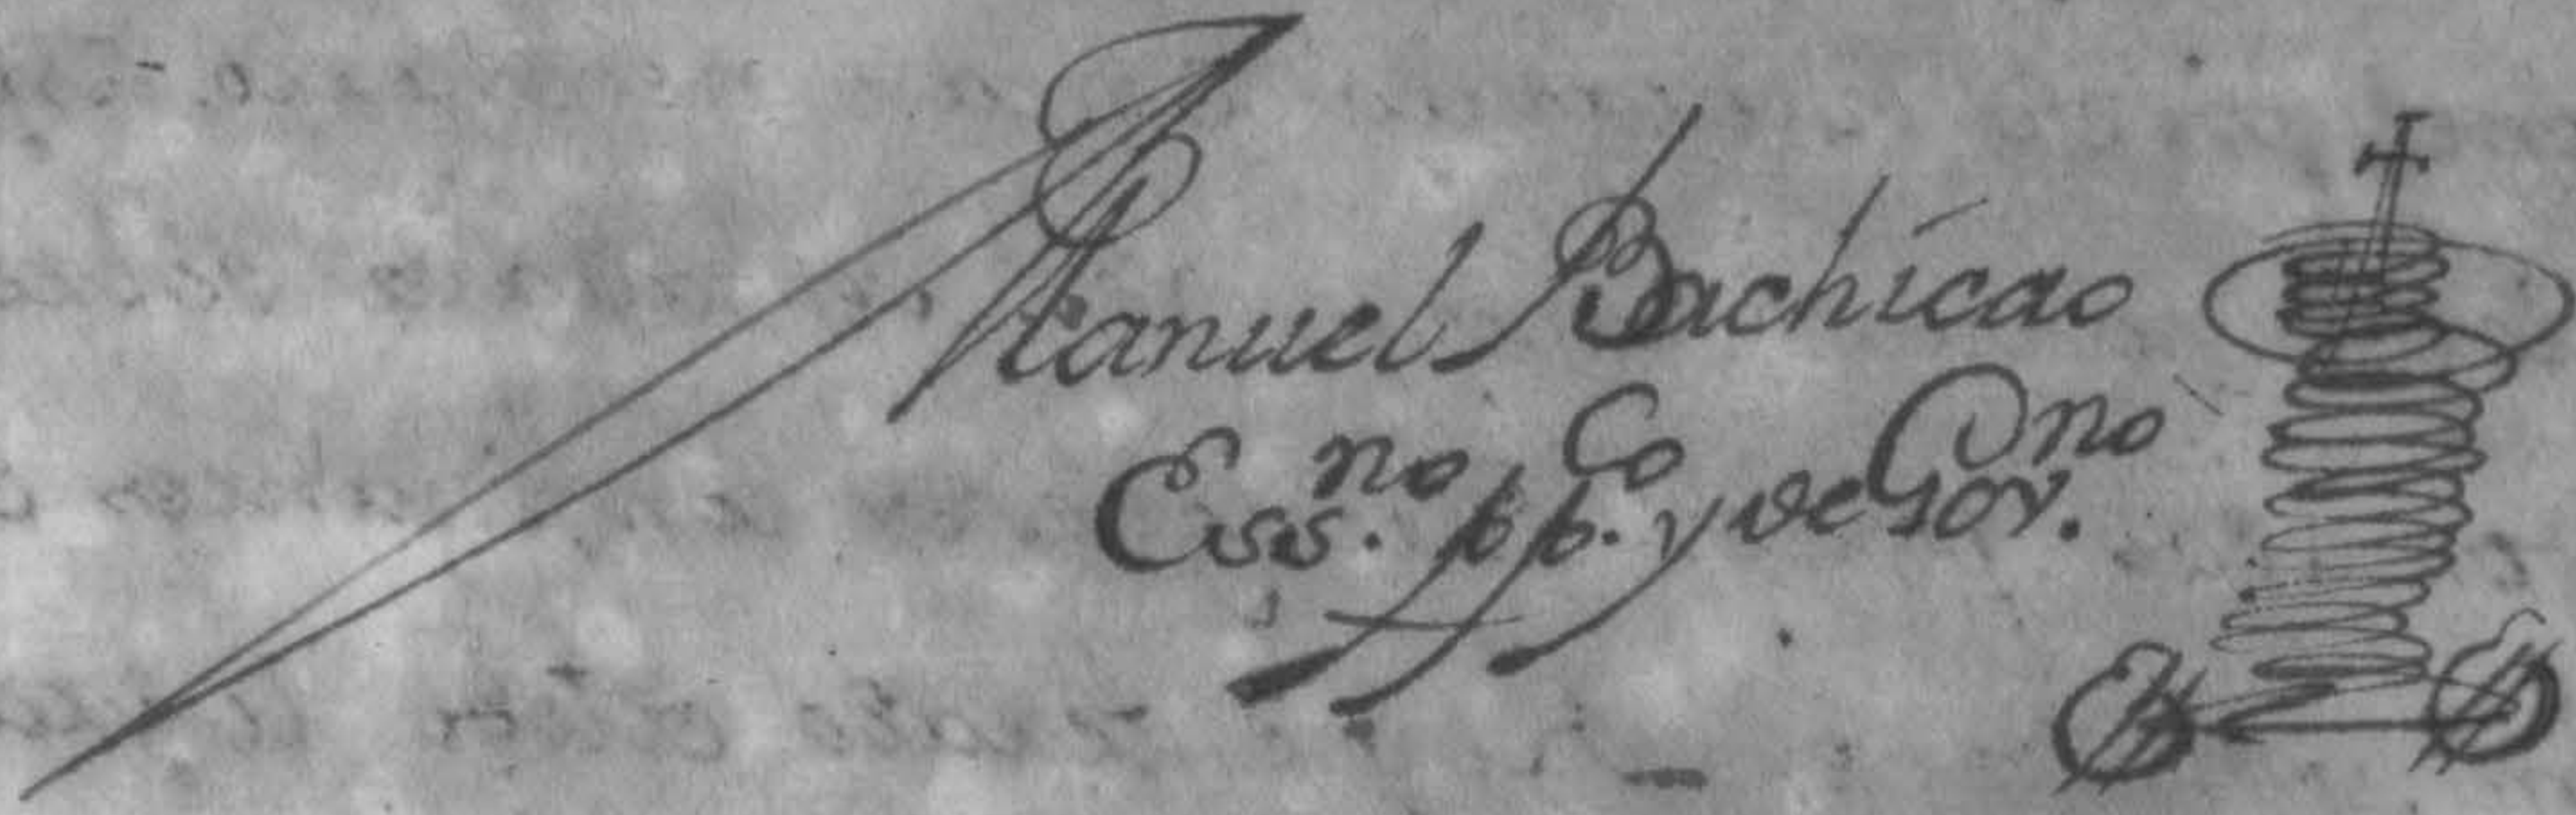 Manuel Bachicao
Ess.no pp.co y de Gov.no